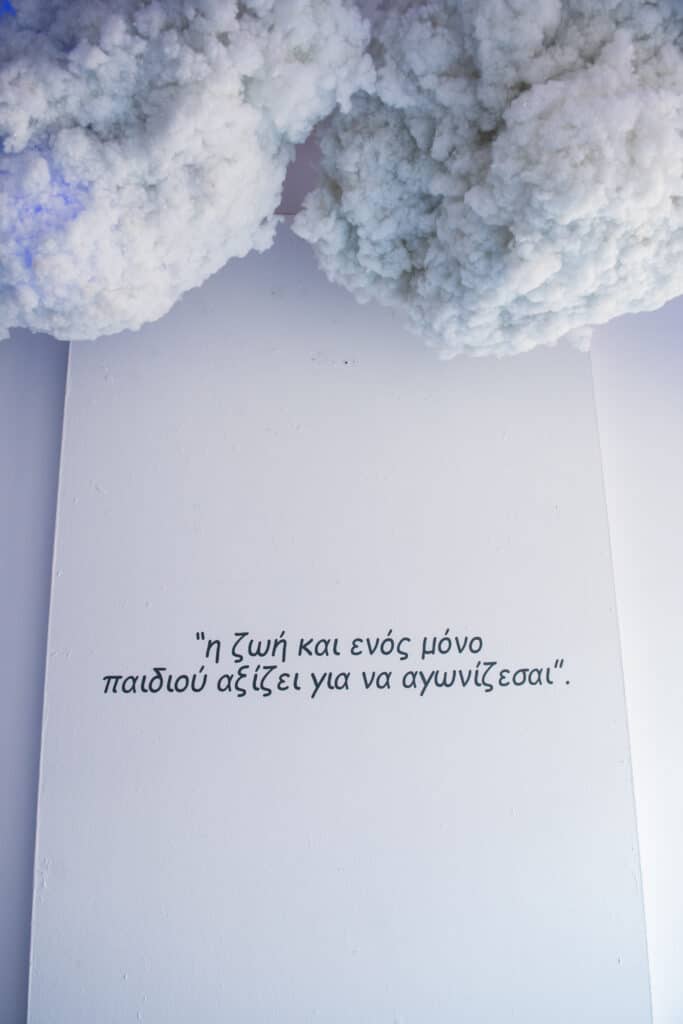 "η ζωή και ενός μόνο
παιδιού αξίζει για να αγωνίζεσαι".